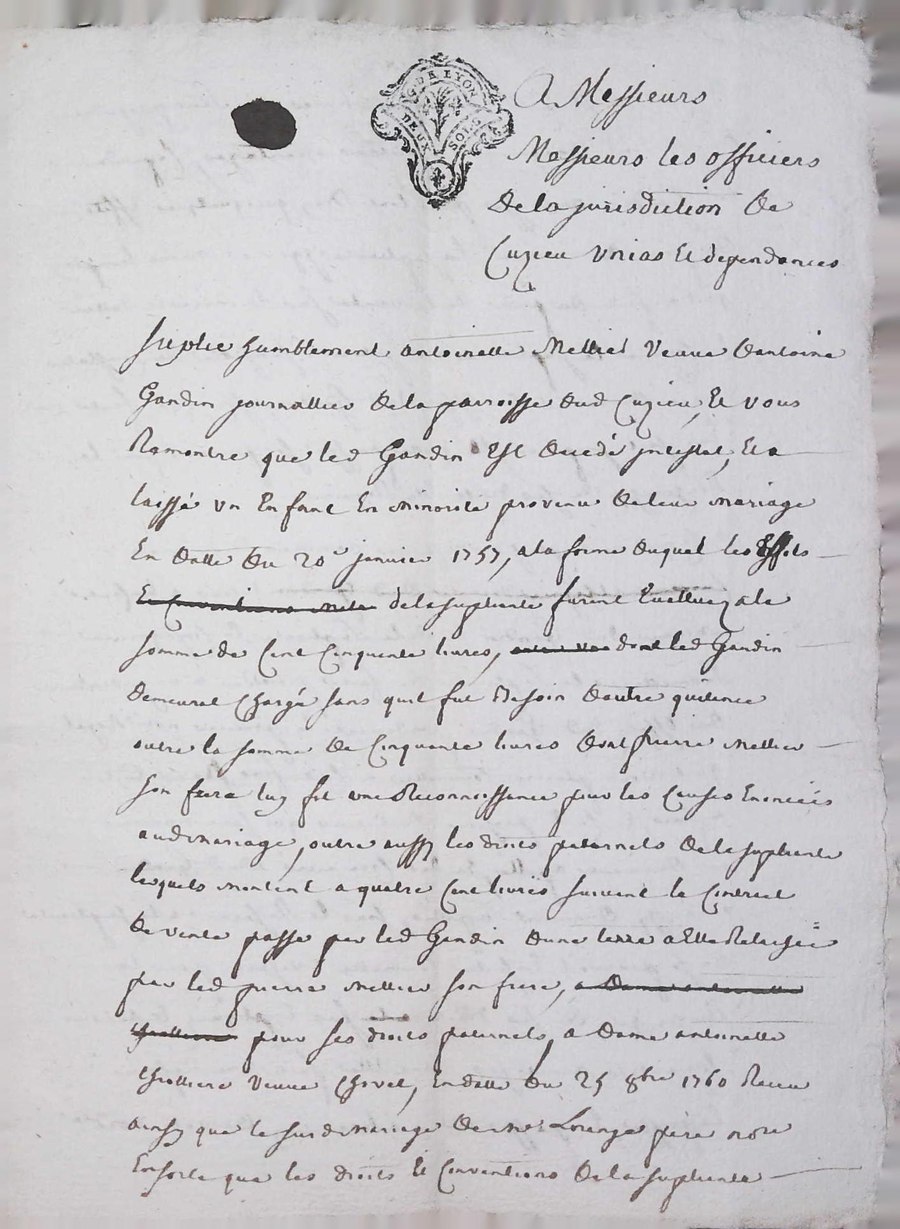 G. DE LYON
DEUX SOLS
A Messieurs
Messieurs les officiers
De la jurisdiction de
Cuzieu Unias Et dependances
suplie humblement antoinette Mellier Veuve D'antoine
Gandin journallier De la parroisse dud Cuzieu, Et vous
Remontre que led Gandin Est decedé intestat, Et a
laissé un Enfant En minorité provenu de leur mariage
En datte du 20e janvier 1757, a la forme duquel les Effets
de la supliante furent Evalluez a la
somme de Cent Cinquante livres, dont led Gandin
demeurat Chargé sans quil fut Besoin dautre quitance
outre la somme de Cinquante livres dont pierre mellier
son frere luy fit une Reconnoissance pour les Causes Enoncées
aud mariage, outre aussy les droits paternels de la supliante
lesquels montent a quatre Cent livres suivant le Contract
de vente passé par led Gandin dune terre a Elle Relachée
par led pierre mellier son frere,
pour ses droits paternels, a dame antoinette
veuve Chovet, En datte du 25 8bre 1760 Receu
ainsy que le susd mariage de Me Lorange pere nore
Ensorte que les droits Et Conventions de la supliante